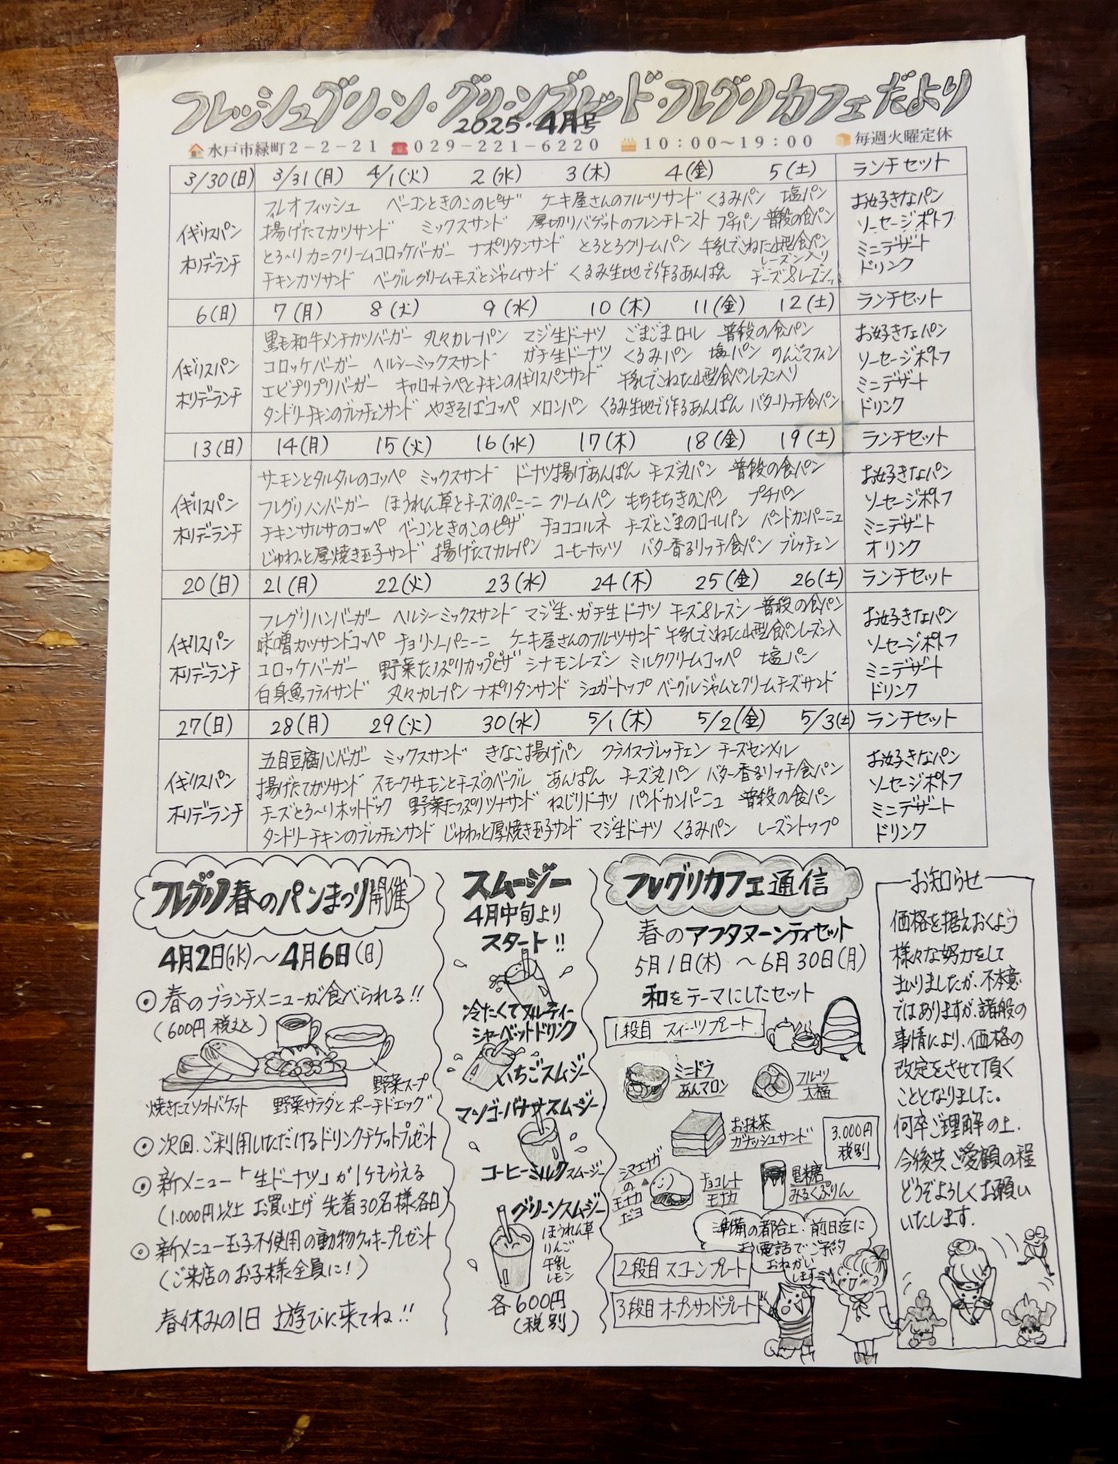 フレッシュグリーン・グリーンブレッド・フレグリカフェだより
2025・4月号
水戸市緑町2-2-21 029-221-6220 10:00〜19:00 毎週火曜定休
3/30(日) 3/31(月) 4/1(火) 2(水) 3(木) 4(金) 5(土) ランチセット
イギリスパン
ホリデーランチ
フィレオフィッシュ ベーコンときのこのピザ ケーキ屋さんのフルーツサンド くるみパン 塩パン
揚げたてカツサンド ミックスサンド 厚切りバゲットのフレンチトースト プチパン 普段の食パン
とろ〜りカニクリームコロッケバーガー ナポリタンサンド とろとろクリームパン 牛乳でこねた山型食パンレーズン入り
チキンカツサンド ベーグルクリームチーズとジャムサンド くるみ生地で作るあんぱん チーズ&レーズン
お好きなパン
ソーセージポトフ
ミニデザート
ドリンク
6(日) 7(月) 8(火) 9(水) 10(木) 11(金) 12(土) ランチセット
イギリスパン
ホリデーランチ
黒毛和牛メンチカツバーガー 丸々カレーパン マジ生ドーナツ ごまごまロール 普段の食パン
コロッケバーガー ヘルシーミックスサンド ガチ生ドーナツ くるみパン 塩パン りんごマフィン
エビプリプリバーガー キャロットラペとチキンのイギリスパンサンド 牛乳でこねた山型食パンレーズン入り
タンドリーチキンのブレッチェンサンド やきそばコッペ メロンパン くるみ生地で作るあんぱん バターリッチ食パン
お好きなパン
ソーセージポトフ
ミニデザート
ドリンク
13(日) 14(月) 15(火) 16(水) 17(木) 18(金) 19(土) ランチセット
イギリスパン
ホリデーランチ
サーモンとタルタルのコッペ ミックスサンド ドーナツ揚げあんぱん チーズ丸パン 普段の食パン
フレグリハンバーガー ほうれん草とチーズのパニーニ クリームパン もちもちきのこパン プチパン
チキンサルサのコッペ ベーコンときのこのピザ チョココルネ チーズとごまのロールパン パンドカンパーニュ
じゅわっと厚焼き玉子サンド 揚げたてカレーパン コーヒーナッツ バター香るリッチ食パン ブレッチェン
お好きなパン
ソーセージポトフ
ミニデザート
オリンク
20(日) 21(月) 22(火) 23(水) 24(木) 25(金) 26(土) ランチセット
イギリスパン
ホリデーランチ
フレグリハンバーガー ヘルシーミックスサンド マジ生・ガチ生ドーナツ チーズ&レーズン 普段の食パン
味噌カツサンドコッペ チョリソーパニーニ ケーキ屋さんのフルーツサンド 牛乳でこねた山型食パンレーズン入
コロッケバーガー 野菜たっぷりカップピザ シナモンレーズン ミルククリームコッペ 塩パン
白身魚フライサンド 丸々カレーパン ナポリタンサンド シュガートップ ベーグルジャムとクリームチーズサンド
お好きなパン
ソーセージポトフ
ミニデザート
ドリンク
27(日) 28(月) 29(火) 30(水) 5/1(木) 5/2(金) 5/3(土) ランチセット
イギリスパン
ホリデーランチ
五目豆腐ハンバーガー ミックスサンド きなこ揚げパン フライスブレッチェン チーズセンメル
揚げたてカツサンド スモークサーモンとチーズのベーグル あんぱん チーズ丸パン バター香るリッチ食パン
チーズとろ〜りホットドック 野菜たっぷりツナサンド ねじりドーナツ パンドカンパーニュ 普段の食パン
タンドリーチキンのブレッチェンサンド じゅわっと厚焼き玉子サンド マジ生ドーナツ くるみパン レーズントップ
お好きなパン
ソーセージポトフ
ミニデザート
ドリンク
フレグリ春のパンまつり開催
4月2日(水)〜4月6日(日)
⊙春のブランチメニューが食べられる!!
(600円税込)
野菜スープ
焼きたてソフトバゲット 野菜サラダとポーチドエッグ
⊙次回、ご利用いただけるドリンクチケットプレゼント
⊙新メニュー「生ドーナツ」が1ケもらえる
(1,000円以上お買い上げ 先着30名様各日)
⊙新メニュー玉子不使用の動物クッキープレゼント
(ご来店のお子様全員に!)
春休みの1日 遊びに来てね!!
スムージー
4月中旬より
スタート!!
冷たくてフルーティー
シャーベットドリンク
いちごスムージー
マンゴーバナナスムージー
コーヒーミルクスムージー
グリーンスムージー
ほうれん草
りんご
牛乳
レモン
各600円
(税別)
フレグリカフェ通信
春のアフタヌーンティセット
5月1日(木)〜6月30日(月)
和をテーマにしたセット
1段目 スイーツプレート
ミニドラ
あんマロン
フルーツ
大福
お抹茶
ガナッシュサンド
3,000円
税別
シマエナガ
の
モナカ
チョコレート
モナカ
黒糖
みるくぷりん
準備の都合上、前日迄に
お電話でご予約
おねがい
します
2段目 スコーンプレート
3段目 オープンサンドプレート
お知らせ
価格を据えおくよう
様々な努力をして
まいりましたが、不本意
ではありますが、諸般の
事情により、価格の
改定をさせて頂く
こととなりました。
何卒ご理解の上、
今後共、ご愛顧の程
どうぞよろしくお願い
いたします。